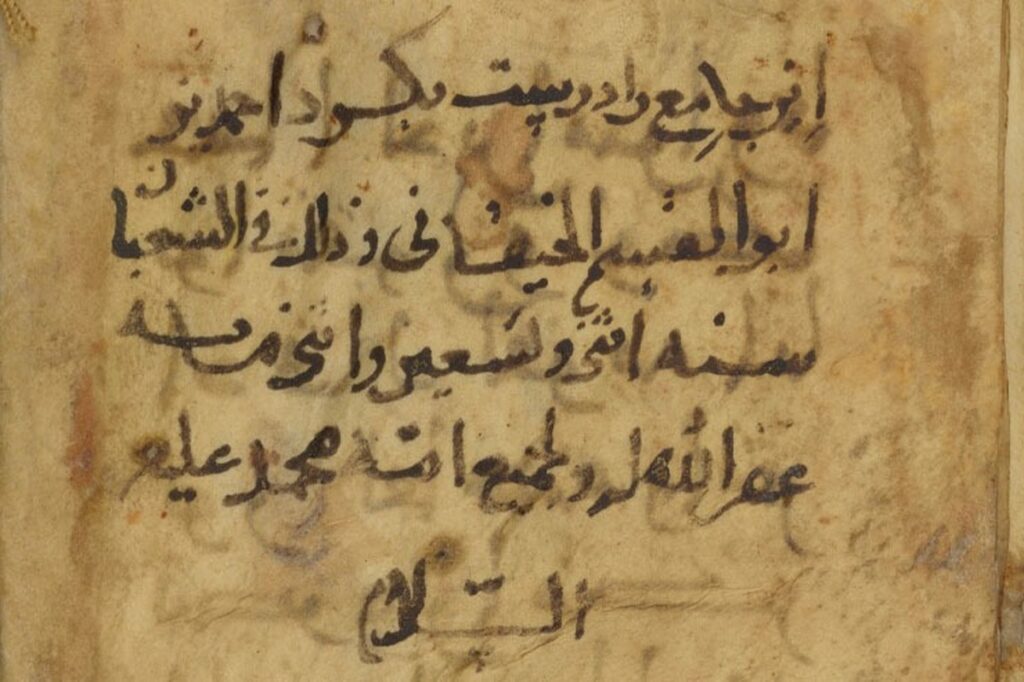 اين جامع را درست بكرد احمد بن
ابوالقسم الخيقانى و ذلك فى الشعبان
سنه اثنى و تسعين و اثنى مايه
غفر الله له ولجميع امته محمد عليه
السلام